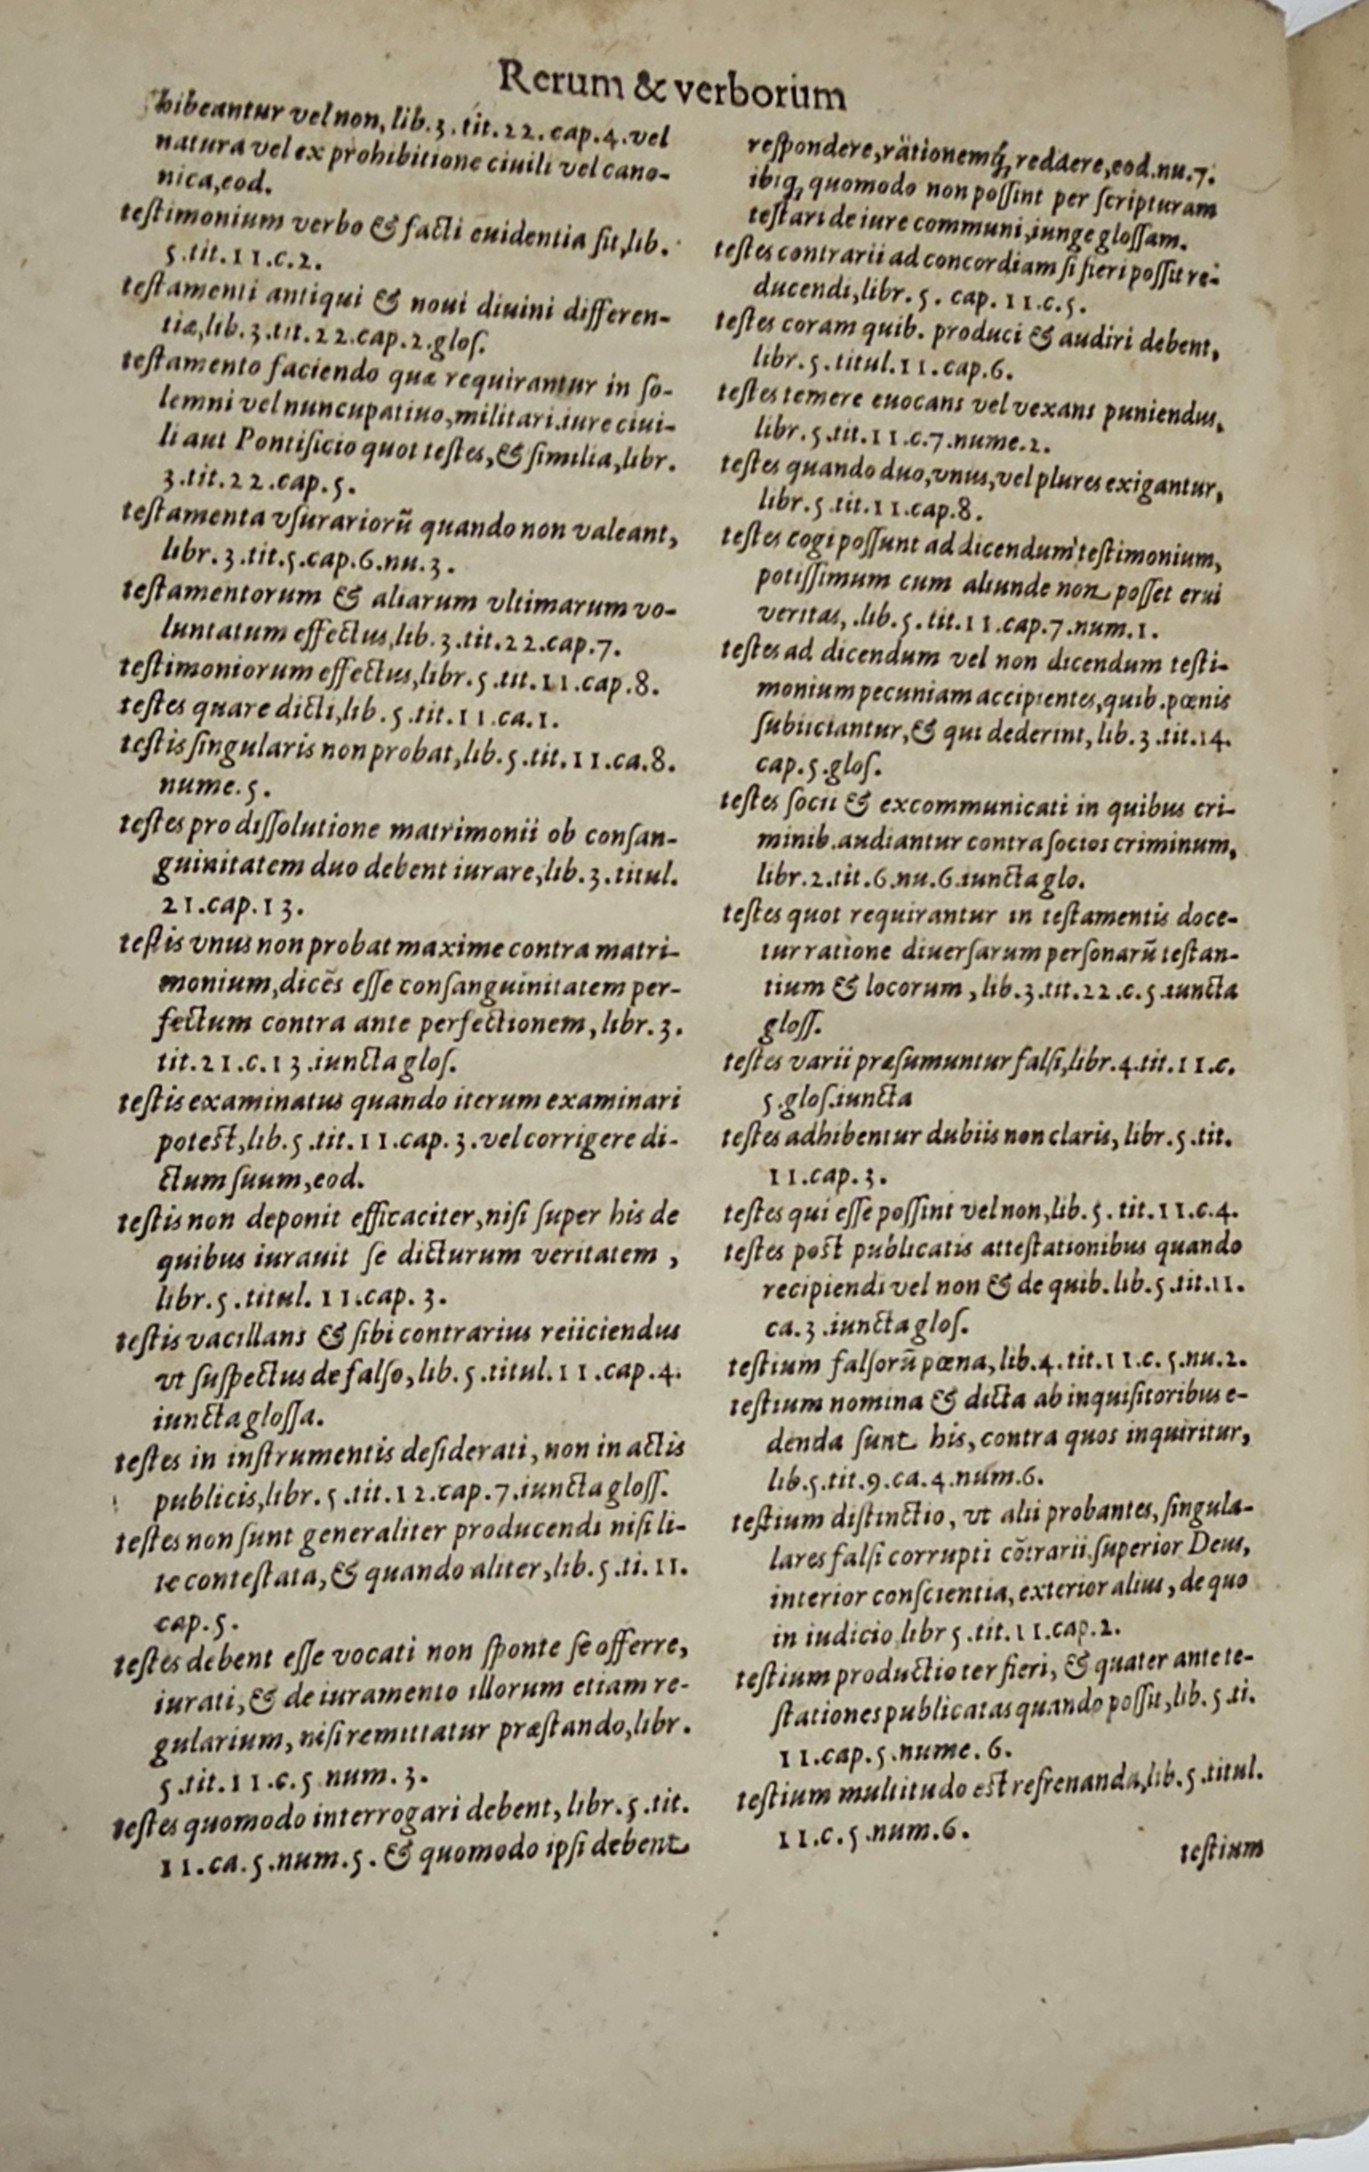 Rerum & verborum
hibeantur vel non, lib.3.tit.22.cap.4.vel
natura vel ex prohibitione ciuili vel cano-
nica, eod.
testimonium verbo & facti euidentia sit, lib.
5.tit.11.c.2.
testamenti antiqui & noui diuini differen-
tiæ, lib.3.tit.22.cap.2.glos.
testamento faciendo quæ requirantur in so-
lemni vel nuncupatiuo, militari.iure ciui-
li aut Pontificio quot testes, & similia, libr.
3.tit.22.cap.5.
testamenta vsurariorũ quando non valeant,
libr.3.tit.5.cap.6.nu.3.
testamentorum & aliarum vltimarum vo-
luntatum effectus, lib.3.tit.22.cap.7.
testimoniorum effectus, libr.5.tit.11.cap.8.
testes quare dicti, lib.5.tit.11.ca.1.
testis singularis non probat, lib.5.tit.11.ca.8.
nume.5.
testes pro dissolutione matrimonii ob consan-
guinitatem duo debent iurare, lib.3.titul.
21.cap.13.
testis vnus non probat maxime contra matri-
monium, dicẽs esse consanguinitatem per-
fectum contra ante perfectionem, libr.3.
tit.21.c.13.iuncta glos.
testis examinatus quando iterum examinari
potest, lib.5.tit.11.cap.3.vel corrigere di-
ctum suum, eod.
testis non deponit efficaciter, nisi super his de
quibus iurauit se dicturum veritatem,
libr.5.titul.11.cap.3.
testis vacillans & sibi contrarius reiiciendus
vt suspectus de falso, lib.5.titul.11.cap.4.
iuncta glossa.
testes in instrumentis desiderati, non in actis
publicis, libr.5.tit.12.cap.7.iuncta gloss.
testes non sunt generaliter producendi nisi li-
te contestata, & quando aliter, lib.5.ti.11.
cap.5.
testes debent esse vocati non sponte se offerre,
iurati, & de iuramento illorum etiam re-
gularium, nisi remittatur præstando, libr.
5.tit.11.c.5.num.3.
testes quomodo interrogari debent, libr.5.tit.
11.ca.5.num.5. & quomodo ipsi debent
respondere, rationemq́; reddere, eod.nu.7.
ibiq; quomodo non possint per scripturam
testari de iure communi, iunge glossam.
testes contrarii ad concordiam si fieri possit re-
ducendi, libr.5.cap.11.c.5.
testes coram quib. produci & audiri debent,
libr.5.titul.11.cap.6.
testes temere euocans vel vexans puniendus,
libr.5.tit.11.c.7.nume.2.
testes quando duo, vnus, vel plures exigantur,
libr.5.tit.11.cap.8.
testes cogi possunt ad dicendum testimonium,
potissimum cum aliunde non posset erui
veritas, .lib.5.tit.11.cap.7.num.1.
testes ad dicendum vel non dicendum testi-
monium pecuniam accipientes, quib.pœnis
subiiciantur, & qui dederint, lib.3.tit.14.
cap.5.glos.
testes socii & excommunicati in quibus cri-
minib.audiantur contra socios criminum,
libr.2.tit.6.nu.6.iuncta glo.
testes quot requirantur in testamentis doce-
tur ratione diuersarum personarũ testan-
tium & locorum, lib.3.tit.22.c.5.iuncta
gloss.
testes varii præsumuntur falsi, libr.4.tit.11.c.
5.glos.iuncta
testes adhibentur dubiis non claris, libr.5.tit.
11.cap.3.
testes qui esse possint vel non, lib.5.tit.11.c.4.
testes post publicatis attestationibus quando
recipiendi vel non & de quib.lib.5.tit.11.
ca.3.iuncta glos.
testium falsorũ pœna, lib.4.tit.11.c.5.nu.2.
testium nomina & dicta ab inquisitoribus e-
denda sunt his, contra quos inquiritur,
lib.5.tit.9.ca.4.num.6.
testium distinctio, vt alii probantes, singula-
lares falsi corrupti cõtrarii.superior Deus,
interior conscientia, exterior alius, de quo
in iudicio libr 5.tit.11.cap.2.
testium productio ter fieri, & quater ante te-
stationes publicatas quando possit, lib.5.ti.
11.cap.5.nume.6.
testium multitudo est refrenanda, lib.5.titul.
11.c.5.num.6.
testium